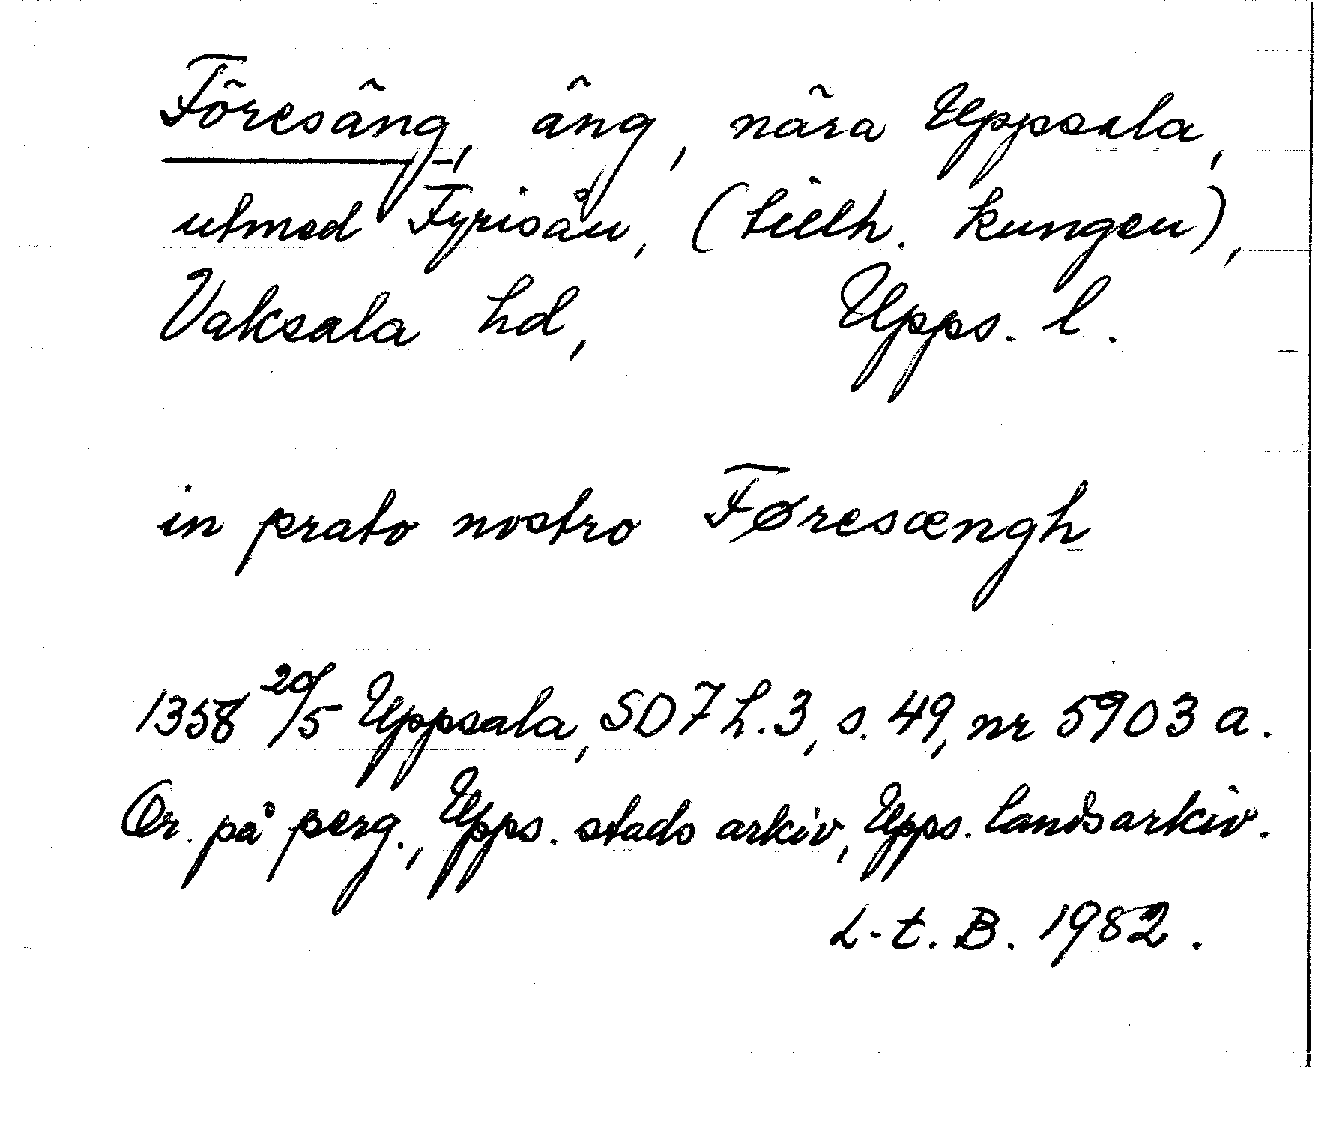 Föresäng, äng, nära Uppsala,
utmed Fyrisån, (tillh. kungen),
Vaksala hd, Upps. l.
in prato nostro Føresængh
1358 20/5 Uppsala, SD 7 h. 3, s. 49, nr 5903 a.
Or. på perg., Upps. stads arkiv, Upps. landsarkiv.
L-t. B. 1982.